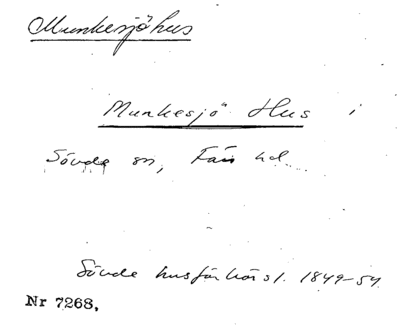 Munkesjöhus
Munkesjö Hus i
Sövde sn, Färs hd.
Sövde husförhörsl. 1849-54
Nr 7268,